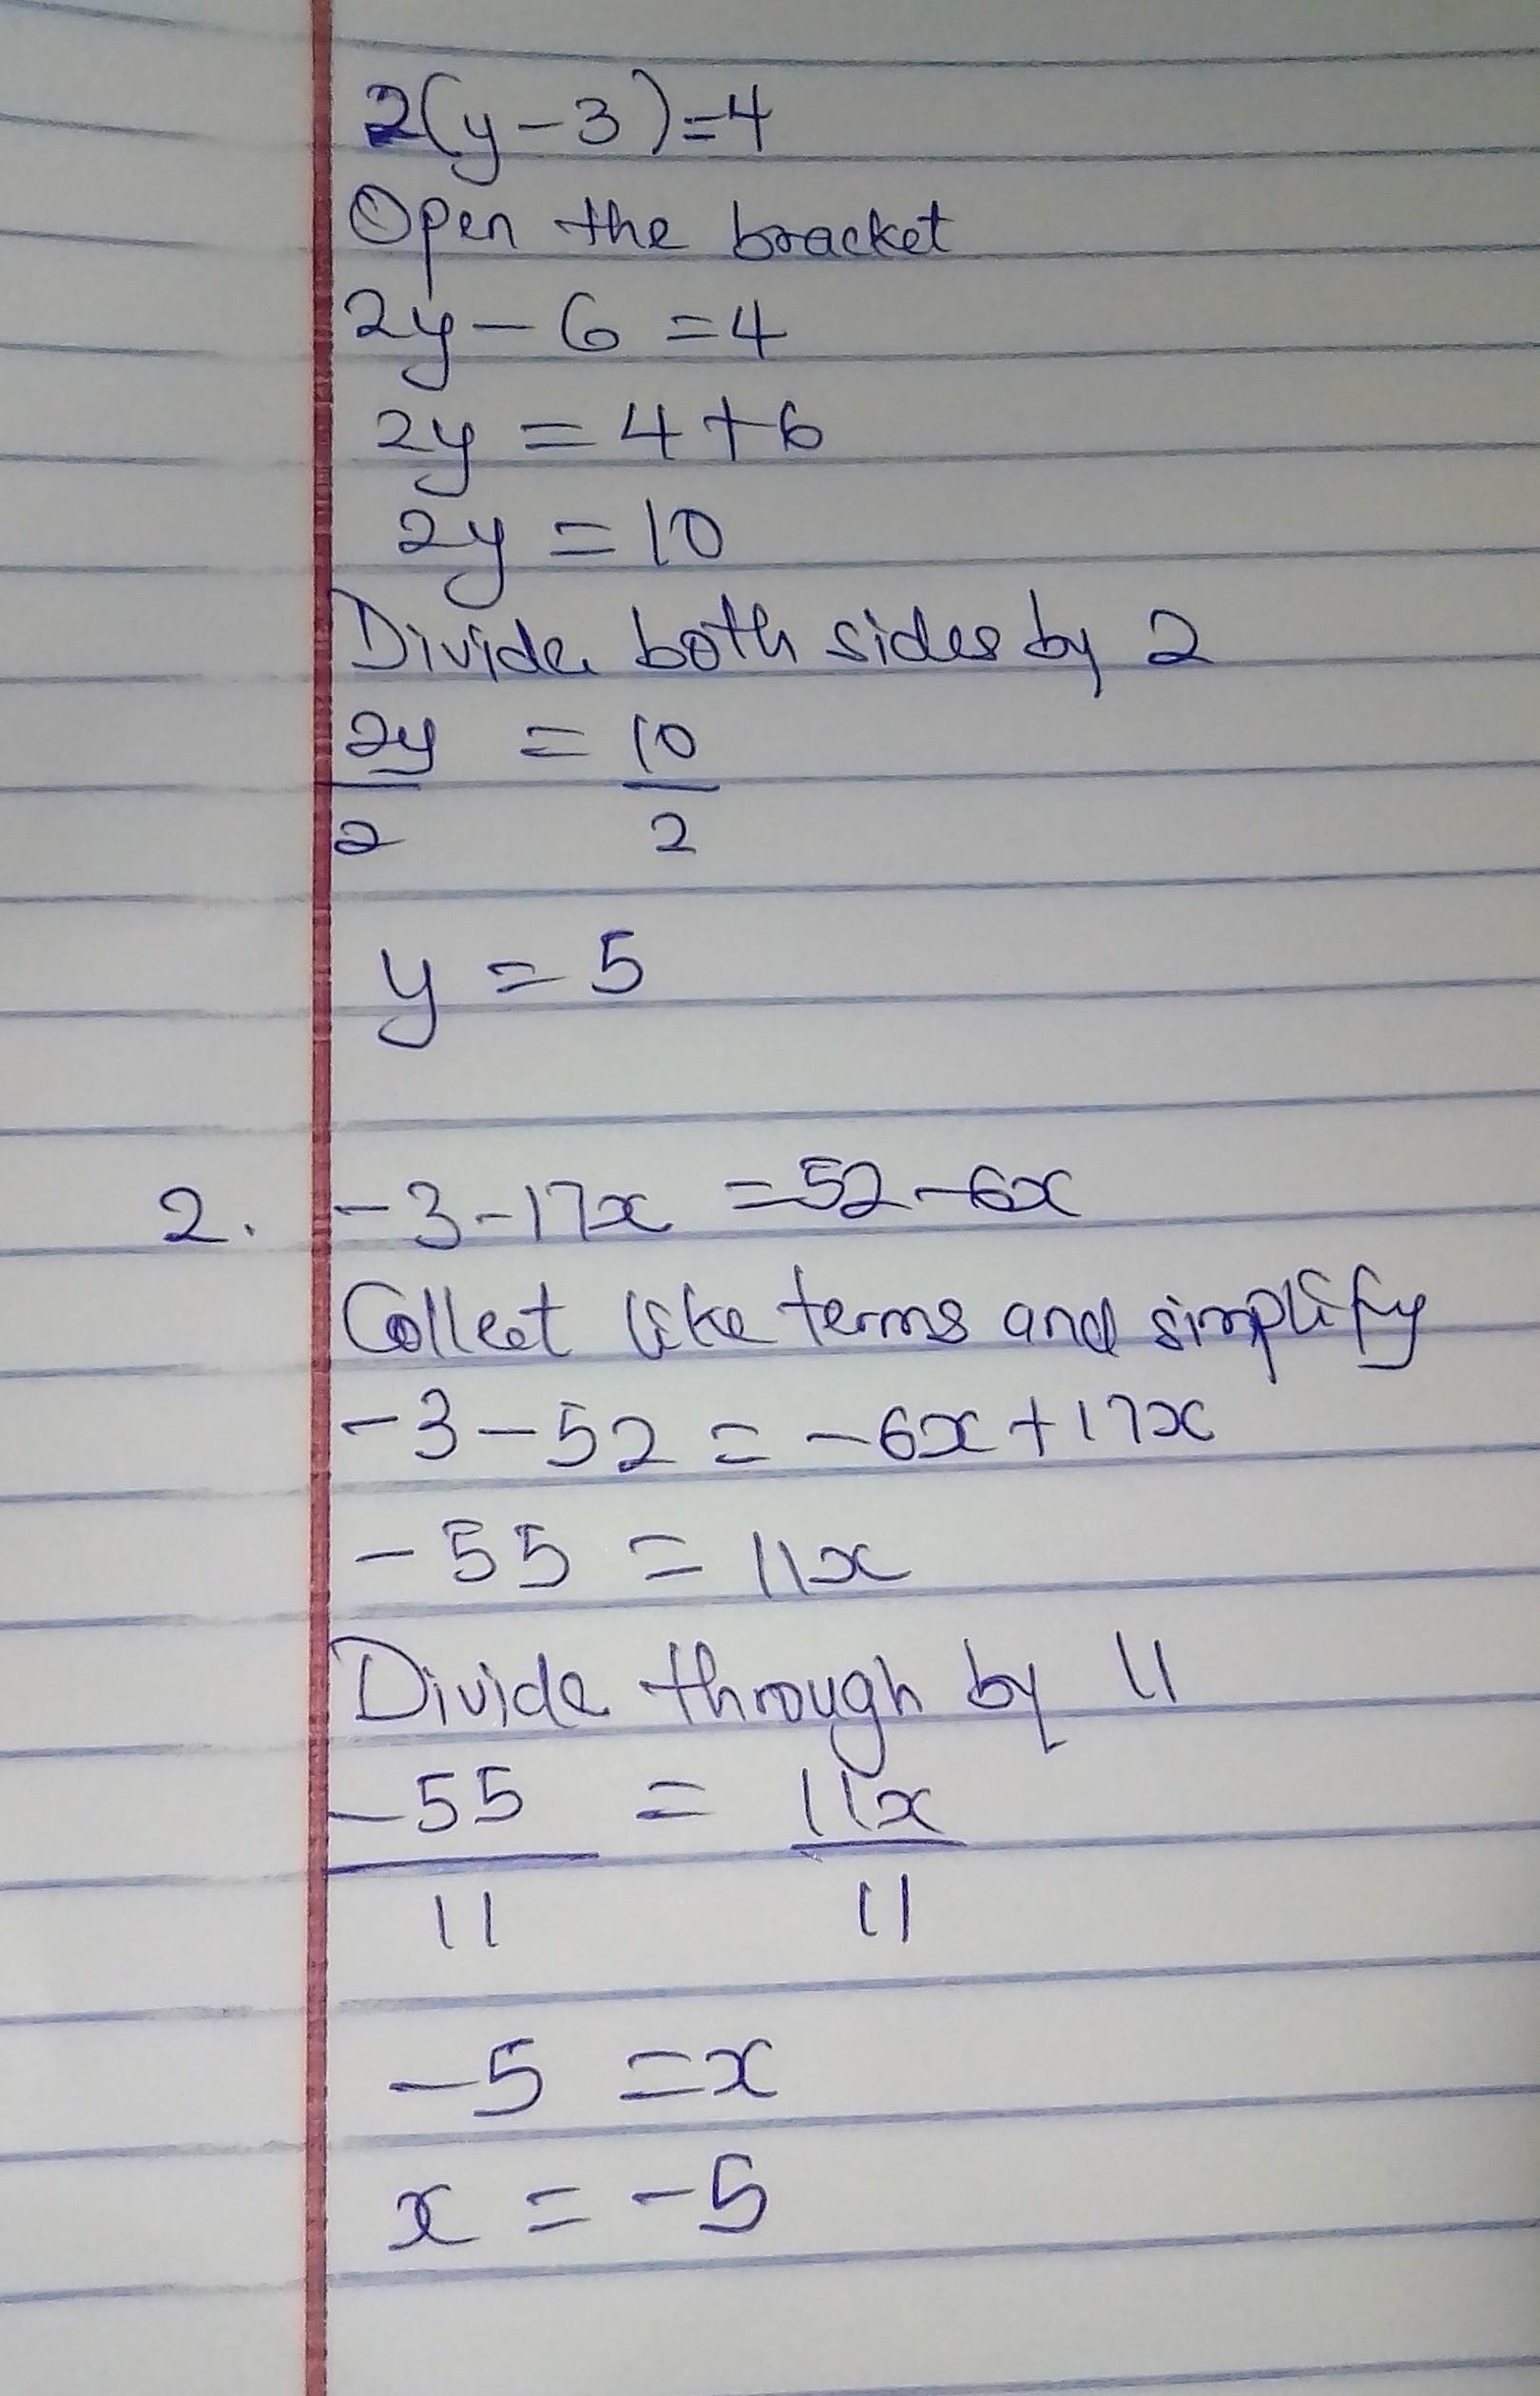 2(y-3)=4
Open the bracket
2y-6=4
2y=4+6
2y=10
Divide both sides by 2
2y = 10
2 2
y=5
2. -3-17x=52-6x
Collect like terms and simplify
-3-52=-6x+17x
-55=11x
Divide through by 11
-55 = 11x
11 11
-5=x
x=-5